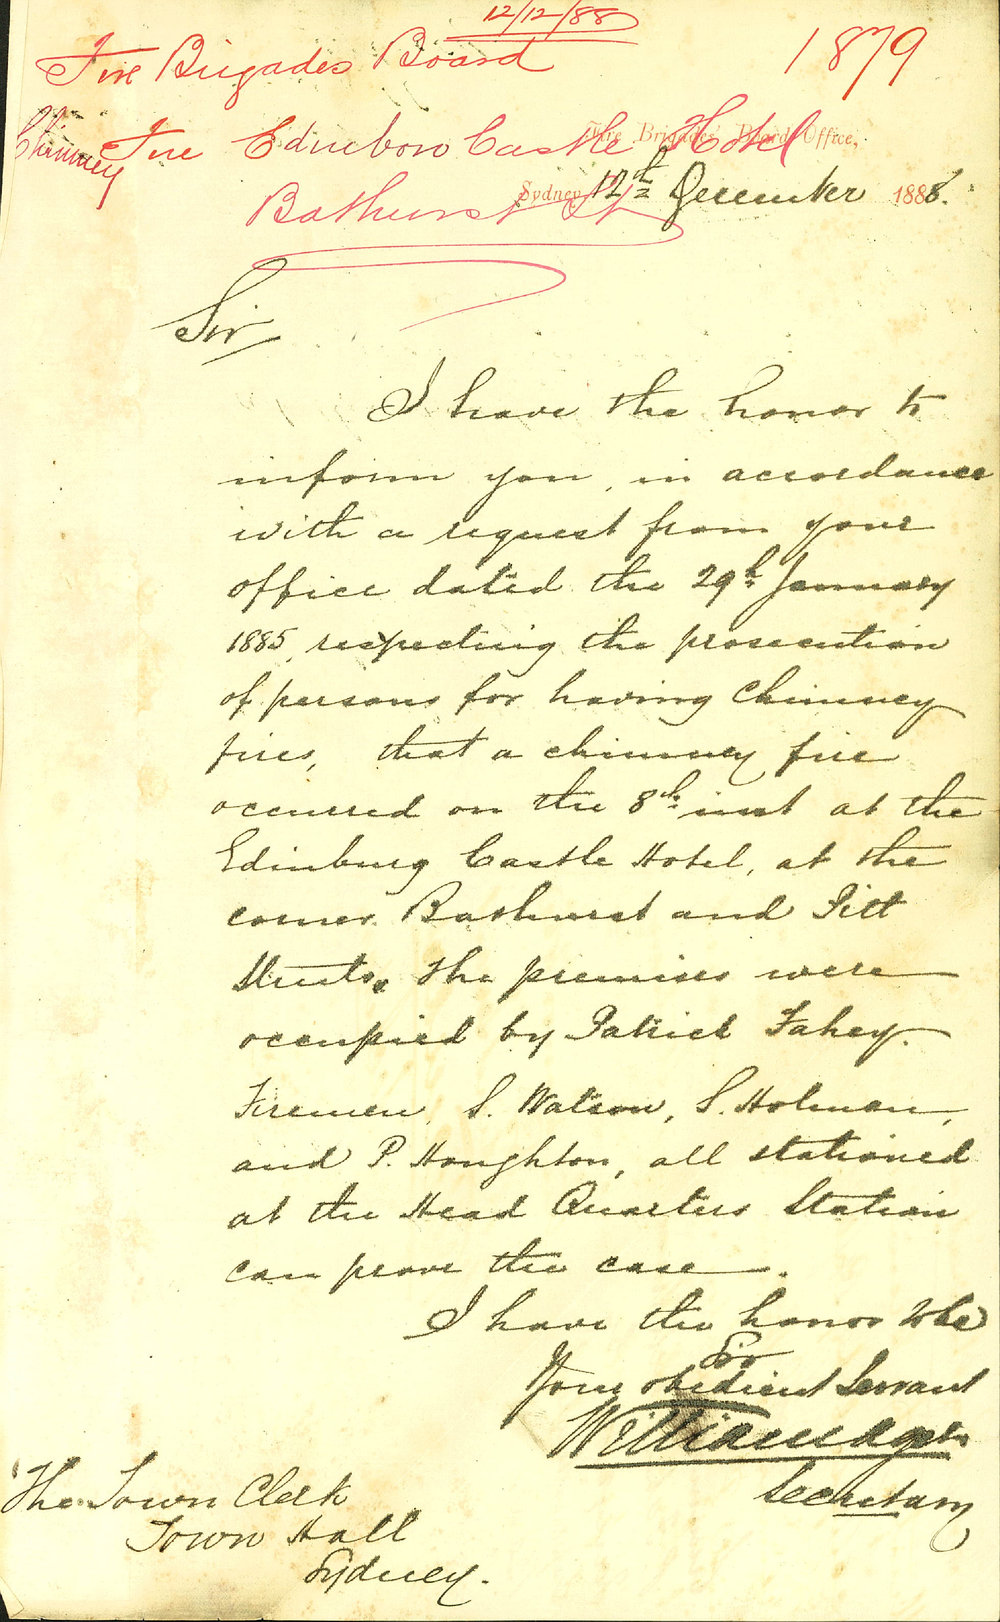 12/12/88
Fire Brigades Board
1879
Chimney Fire Edinboro Castle Hotel
Bathurst St
Fire Brigades' Board Office,
Sydney 12th December 1888.
Sir
I have the honor to
inform you, in accordance
with a request from your
office dated the 29th January
1885, respecting the prosecution
of persons for having Chimney
fires, that a chimney fire
occurred on the 8th inst at the
Edinburg Castle Hotel, at the
corner Bathurst and Pitt
Streets. The premises were
occupied by Patrick Fahey.
Firemen, S. Watson, S. Holman,
and P. Houghton, all stationed
at the Head Quarters Station
can prove the case.
I have the honor to be
Sir
Your obedient Servant
Secretary
The Town Clerk
Town Hall
Sydney.